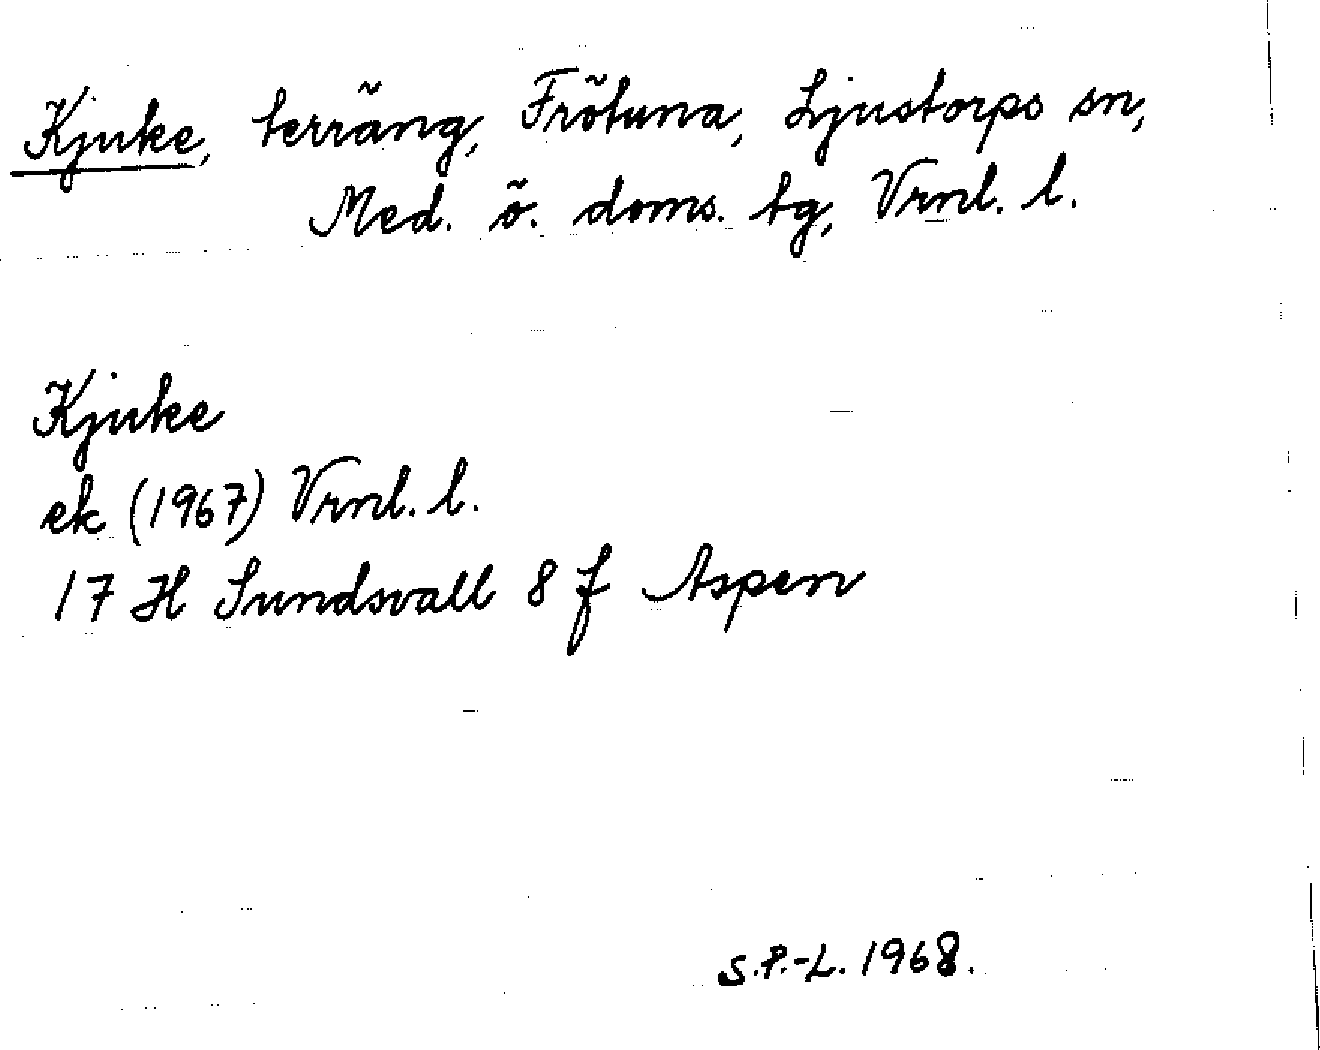 Kjuke, terräng, Frötuna, Ljustorps sn,
Med. ö. doms. tg, Vrnl. l.
Kjuke
ek (1967) Vrnl. l.
17 H Sundsvall 8 f Aspen
S.P.-L. 1968.